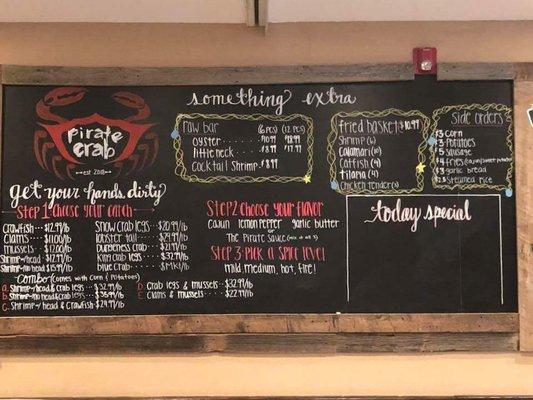 Pirate
crab
est 2018
get your hands dirty
something extra
raw bar (6 pcs) (12 pcs)
oyster
little neck
cocktail Shrimp $8.99
fried basket @ 10.99
Shrimp
Calamari
Catfish
tilapia
Chicken tenders
Side orders
corn
Potatoes
Sausage
garlic bread
Steamed rice
today special
Step 1-Choose your catch
Crawfish $12.99/lb
Clams $11.00/lb
mussels $11.00/lb
Shrimp w/head $12.99/lb
Shrimp-no head $15.99/lb
Snow crab legs $20.99/lb
lobster tail $29.99/lb
Dungeness crab
King crab legs
blue crab $(Mrkt)/lb
Combo (comes with corn & Potatoes)
a. Shrimp w/head & crab legs $32.99/lb
b. Shrimp no head & crab legs
c. Shrimp w/head & Crawfish $24.99/lb
D. Crab legs & mussels $32.99/lb
E. Clams & mussels $22.99/lb
Step 2 Choose your flavor
Cajun lemon pepper garlic butter
or
The Pirate Sauce (mix of all 3)
Step 3-pick a spice level
mild, medium, hot, fire!